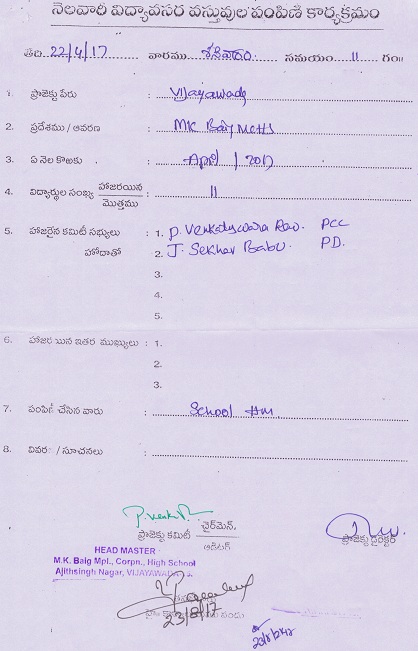 నెలవారి విద్యావసర వస్తువుల పంపిణి కార్యక్రమం
తేది 22/4/17 వారము శనివారం సమయం 11 గం॥
1. ప్రాజెక్టు పేరు : Vijayawada
2. ప్రదేశము / ఆవరణ : MK Baig MCHS
3. ఏ నెల కొఱకు : April / 2017
4. విద్యార్థుల సంఖ్య హాజరయిన : 11
మొత్తము
5. హాజరైన కమిటీ సభ్యులు : 1. P. Venkateswara Rao. PCC
హోదాతో 2. J. Sekhar Babu. P.D.
3.
4.
5.
6. హాజరయిన ఇతర ముఖ్యులు : 1.
2.
3.
7. పంపిణి చేసిన వారు : School HM.
8. వివర / సూచనలు :
ప్రాజెక్టు కమిటీ చైర్‌మెన్.
ఆడిటర్
ప్రాజెక్టు డైరెక్టర్
HEAD MASTER
M.K. Baig Mpl., Corpn., High School
Ajithsingh Nagar, VIJAYAWADA
23/8/17